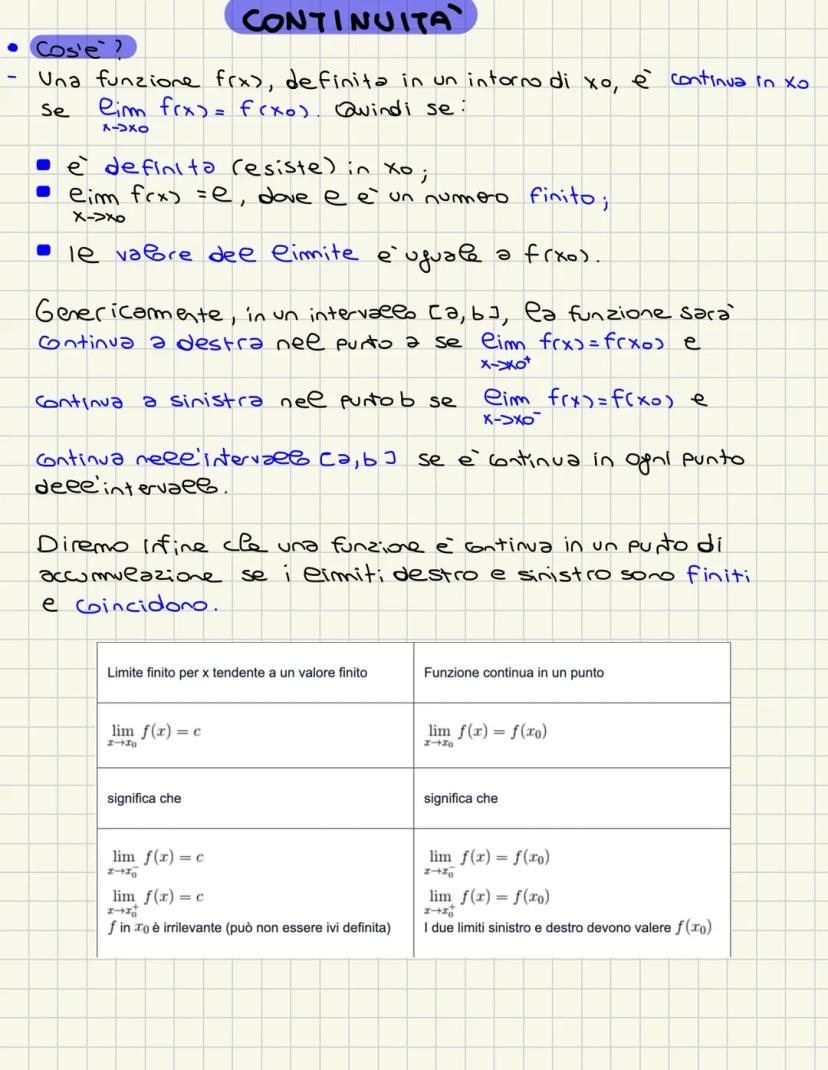 CONTINUITÀ
• Cos'è?
- Una funzione f(x), definita in un intorno di x0, è continua in x0
se lim f(x) = f(x0). Quindi se:
x->x0
▪ è definita (esiste) in x0;
▪ lim f(x) = l, dove l è un numero finito;
x->x0
▪ Il valore del limite è uguale a f(x0).
Genericamente, in un intervallo [a,b], la funzione sarà
continua a destra nel punto a se lim f(x)=f(x0) e
x->x0⁺
continua a sinistra nel punto b se lim f(x)=f(x0) e
x->x0⁻
continua nell'intervallo [a,b] se è continua in ogni punto
dell'intervallo.
Diremo infine che una funzione è continua in un punto di
accumulazione se i limiti destro e sinistro sono finiti
e coincidono.
Limite finito per x tendente a un valore finito
Funzione continua in un punto
lim f(x) = c
x→x₀
lim f(x) = f(x₀)
x→x₀
significa che
significa che
lim f(x) = c
x→x₀⁻
lim f(x) = c
x→x₀⁺
f in x₀ è irrilevante (può non essere ivi definita)
lim f(x) = f(x₀)
x→x₀⁻
lim f(x) = f(x₀)
x→x₀⁺
I due limiti sinistro e destro devono valere f(x₀)